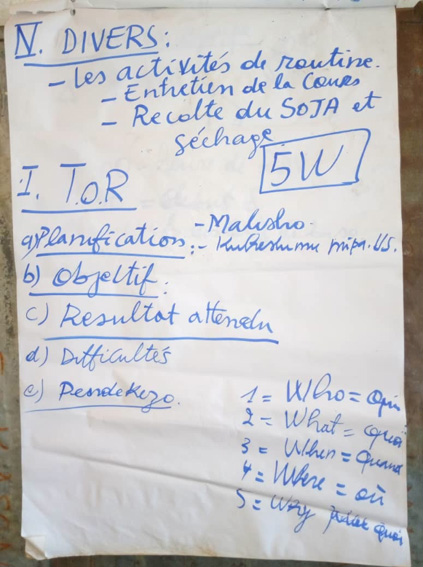 IV. DIVERS:
- Les activités de routine.
- Entretien de la Cours
- Recolte du SOJA et
séchage
5W
I. T.o.R
a) Planification: - Malisho.
- mipa. U5.
b) Objectif:
c) Resultat attendu
d) Difficultés
e) Pendekezo.
1 = Who = Qui
2 = What = quoi
3 = When = Quand
4 = Where = où
5 = Why quoi